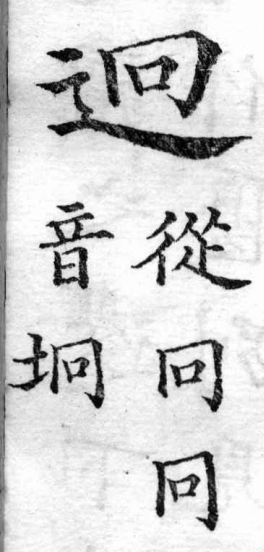 迥
從冋冋
音坰